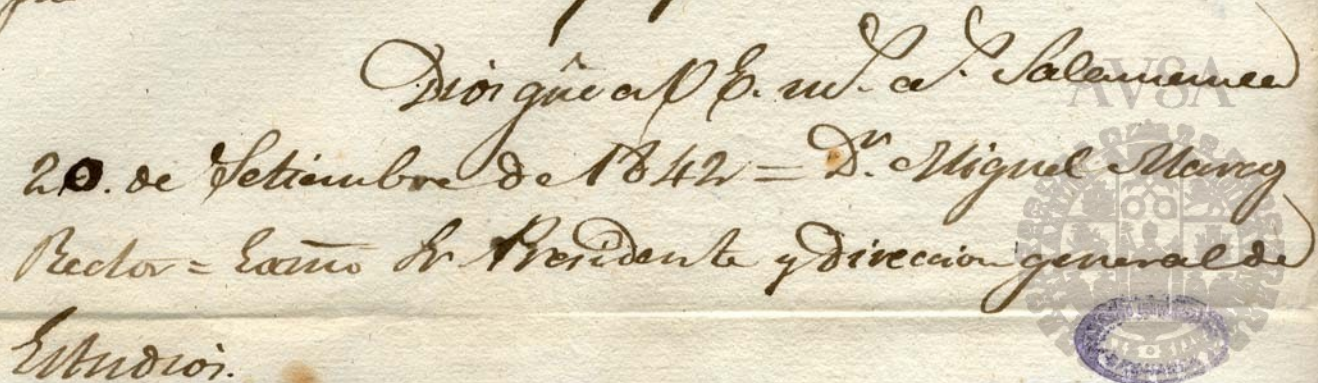 Dios gûe a V E. ms. as. Salamanca
20. de Setiembre de 1842 = Dr. Miguel Marcos
Rector = Exmo Sr Presidente y Direccion general de
Estudios.
AVSA